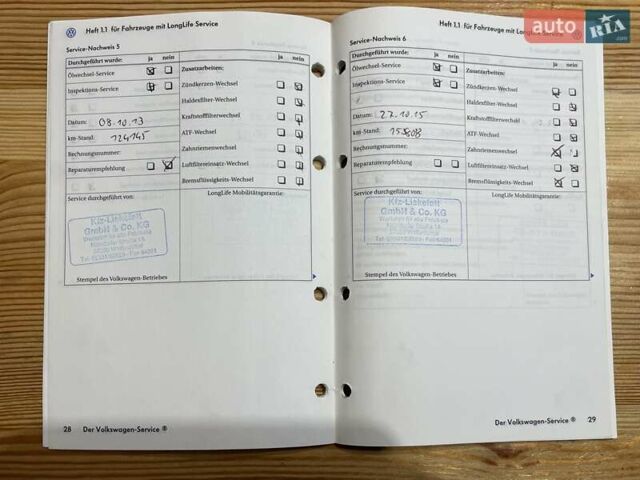 Heft 1.1 für Fahrzeuge mit LongLife Service
Service-Nachweis 5
Durchgeführt wurde: ja nein
Ölwechsel-Service
Inspektions-Service
Datum: 08.10.13
km-Stand: 124145
Rechnungsnummer:
Reparaturempfehlung
Zusatzarbeiten: ja nein
Zündkerzen-Wechsel
Haldexfilter-Wechsel
Kraftstofffilterwechsel
ATF-Wechsel
Zahnriemenwechsel
Luftfiltereinsatz-Wechsel
Bremsflüssigkeits-Wechsel
Service durchgeführt von:
LongLife Mobilitätsgarantie:
GmbH & Co. KG
Stempel des Volkswagen-Betriebes
28 Der Volkswagen-Service ®
Heft 1.1 für Fahrzeuge mit LongLife Service
auto RIA.com
Service-Nachweis 6
Durchgeführt wurde: ja nein
Ölwechsel-Service
Inspektions-Service
Datum: 27.10.15
km-Stand:
Rechnungsnummer:
Reparaturempfehlung
Zusatzarbeiten: ja nein
Zündkerzen-Wechsel
Haldexfilter-Wechsel
Kraftstofffilterwechsel
ATF-Wechsel
Zahnriemenwechsel
Luftfiltereinsatz-Wechsel
Bremsflüssigkeits-Wechsel
Service durchgeführt von:
LongLife Mobilitätsgarantie:
GmbH & Co. KG
Stempel des Volkswagen-Betriebes
Der Volkswagen-Service ® 29